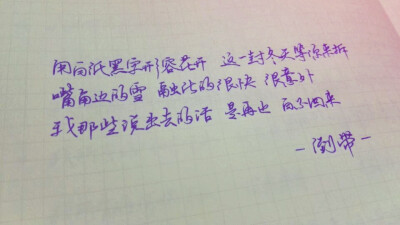 用白纸黑字形容花开 这一封冬天等你来拆
嘴角边的雪 融化的很快 很意外
我那些说出去的话 是再也 回不回来
—倒带—